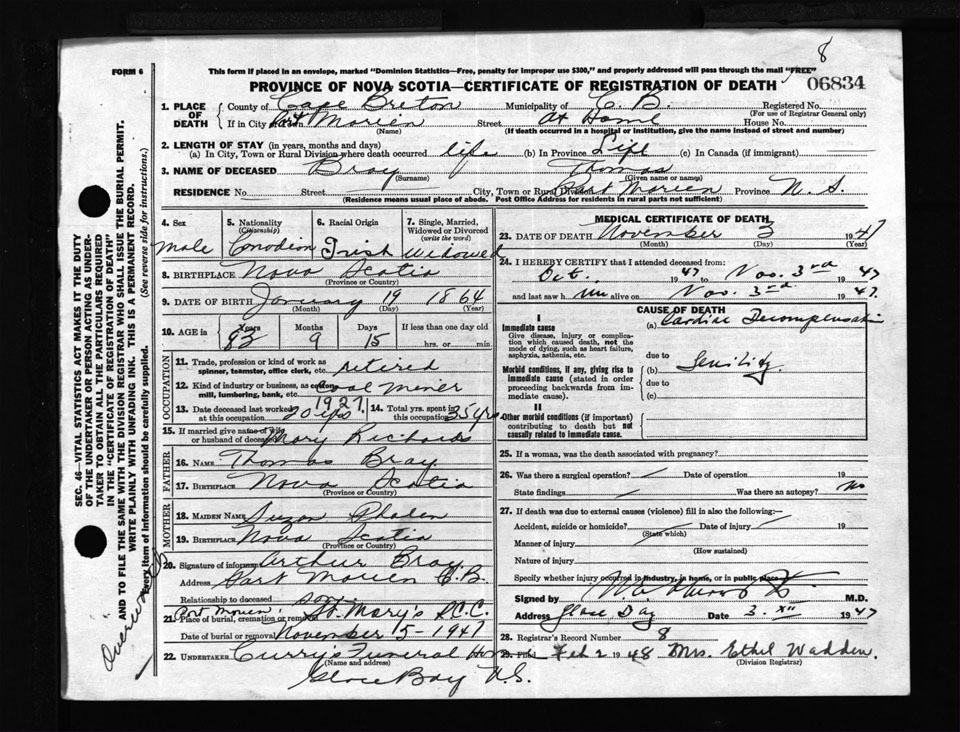 8
FORM 6
This form if placed in an envelope, marked "Dominion Statistics—Free, penalty for improper use $300," and properly addressed will pass through the mail "FREE"
PROVINCE OF NOVA SCOTIA—CERTIFICATE OF REGISTRATION OF DEATH
06834
1. PLACE OF DEATH
County of Cape Breton Municipality of C. B. Registered No.
(For use of Registrar General only)
If in City or Town Port Morien Street At Home House No.
(Name) (If death occurred in a hospital or institution, give the name instead of street and number)
2. LENGTH OF STAY (in years, months and days)
(a) In City, Town or Rural Division where death occurred life (b) In Province Life (c) In Canada (if immigrant)
3. NAME OF DECEASED Bray Thomas
(Surname) (Given name or names)
RESIDENCE No. Street City, Town or Rural Division Port Morien Province N. S.
(Residence means usual place of abode. Post Office Address for residents in rural parts not sufficient)
4. Sex
Male
5. Nationality (Citizenship)
Canadian
6. Racial Origin
Irish
7. Single, Married, Widowed or Divorced (write the word)
Widowed
8. BIRTHPLACE Nova Scotia
(Province or Country)
9. DATE OF BIRTH January 19 1864
(Month) (Day) (Year)
10. AGE in
Years Months Days If less than one day old
83 9 15 hrs. or min.
OCCUPATION
11. Trade, profession or kind of work as spinner, teamster, office clerk, etc. retired
12. Kind of industry or business, as cotton mill, lumbering, bank, etc. Coal Miner
13. Date deceased last worked at this occupation 1927. 20 yrs
14. Total yrs. spent in this occupation 35 yrs
15. If married give name of wife or husband of deceased Mary Richards
FATHER
16. NAME Thomas Bray
17. BIRTHPLACE Nova Scotia
(Province or Country)
MOTHER
18. MAIDEN NAME Susan Phalen
19. BIRTHPLACE Nova Scotia
(Province or Country)
20. Signature of informant Arthur Bray
Address Port Morien C.B.
Relationship to deceased son
21. Place of burial, cremation or removal Port Morien St. Mary's R.C.C.
Date of burial or removal November 15-1947
22. UNDERTAKER Curry's Funeral Home
(Name and address)
Glace Bay N.S.
MEDICAL CERTIFICATE OF DEATH
23. DATE OF DEATH November 3 1947
(Month) (Day) (Year)
24. I HEREBY CERTIFY that I attended deceased from:
Oct. 1947 to Nov. 3rd 1947
and last saw him alive on Nov. 3rd 1947.
CAUSE OF DEATH
I
Immediate cause
Give disease, injury or complication which caused death, not the mode of dying, such as heart failure, asphyxia, asthenia, etc.
(a) Cardiac Decompensation
due to
Morbid conditions, if any, giving rise to immediate cause (stated in order proceeding backwards from immediate cause).
(b) Senility
due to
(c)
II
Other morbid conditions (if important) contributing to death but not causally related to immediate cause.
25. If a woman, was the death associated with pregnancy?
26. Was there a surgical operation? Date of operation 19
State findings Was there an autopsy? No
27. If death was due to external causes (violence) fill in also the following:—
Accident, suicide or homicide? Date of injury 19
(State which)
Manner of injury
(How sustained)
Nature of injury
Specify whether injury occurred in industry, in home, or in public place
Signed by M.D.
Address Glace Bay Date 3. XII 1947
28. Registrar's Record Number 8
29. Filed Feb 2 1948 Mrs. Ethel Wadden.
(Division Registrar)
SEC. 46—VITAL STATISTICS ACT MAKES IT THE DUTY
OF THE UNDERTAKER OR PERSON ACTING AS UNDER-
TAKER TO OBTAIN ALL THE PARTICULARS REQUIRED
IN THE "CERTIFICATE OF REGISTRATION OF DEATH"
AND TO FILE THE SAME WITH THE DIVISION REGISTRAR WHO SHALL ISSUE THE BURIAL PERMIT.
WRITE PLAINLY WITH UNFADING INK. THIS IS A PERMANENT RECORD.
Every item of information should be carefully supplied. (See reverse side for instructions.)